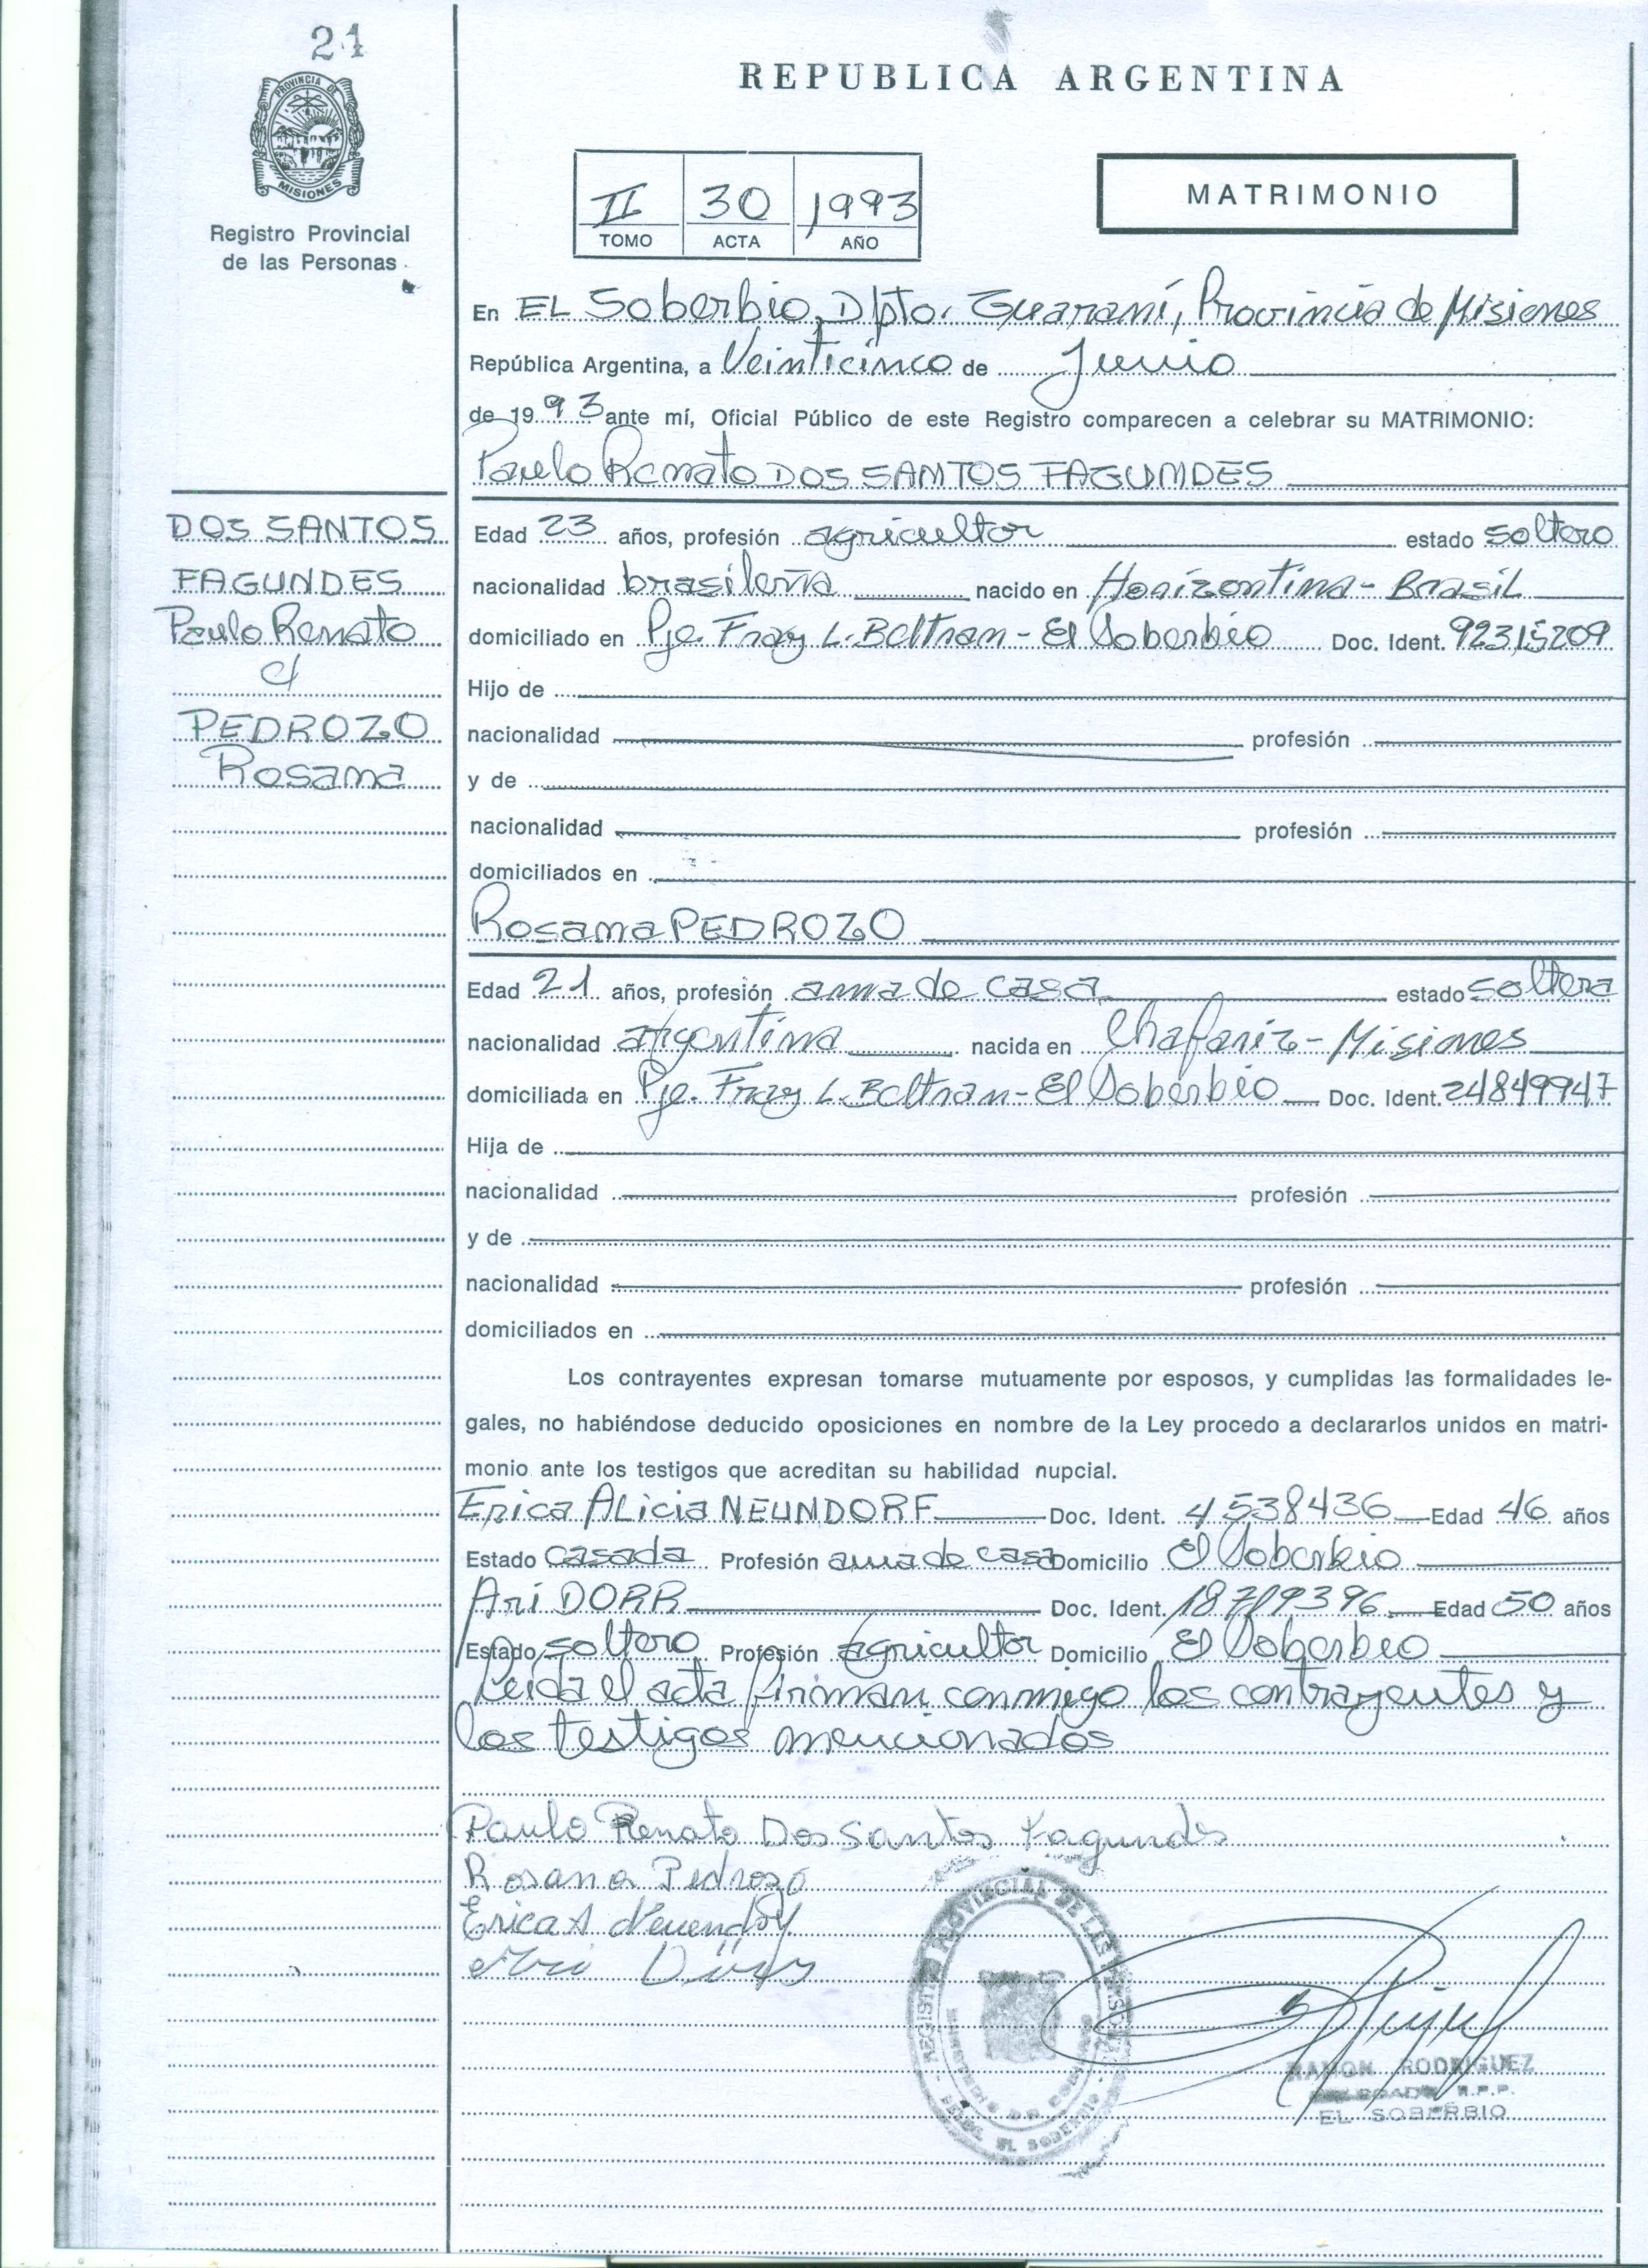 21
PROVINCIA DE
MISIONES
Registro Provincial
de las Personas
REPUBLICA ARGENTINA
II 30 1993
TOMO ACTA AÑO
MATRIMONIO
En EL Soberbio, Dpto. Guaraní, Provincia de Misiones
República Argentina, a Veinticinco de Junio
de 1993 ante mí, Oficial Público de este Registro comparecen a celebrar su MATRIMONIO:
Paulo Renato DOS SANTOS FAGUNDES
DOS SANTOS
FAGUNDES
Paulo Renato
c/
PEDROZO
Rosana
Edad 23 años, profesión agricultor estado soltero
nacionalidad brasileña nacido en Horizontina - Brasil
domiciliado en Pje. Fray L. Beltran - El Soberbio Doc. Ident. 92315209
Hijo de
nacionalidad profesión
y de
nacionalidad profesión
domiciliados en
Rosana PEDROZO
Edad 21 años, profesión ama de casa estado soltera
nacionalidad argentina nacida en Chafariz - Misiones
domiciliada en Pje. Fray L. Beltran - El Soberbio Doc. Ident. 24849947
Hija de
nacionalidad profesión
y de
nacionalidad profesión
domiciliados en
Los contrayentes expresan tomarse mutuamente por esposos, y cumplidas las formalidades le-
gales, no habiéndose deducido oposiciones en nombre de la Ley procedo a declararlos unidos en matri-
monio ante los testigos que acreditan su habilidad nupcial.
Erica ALicia NEUNDORF Doc. Ident. 4538436 Edad 46 años
Estado casada Profesión ama de casa Domicilio El Soberbio
Ari DORR Doc. Ident. 18719396 Edad 50 años
Estado soltero Profesión agricultor Domicilio El Soberbio
Leída el acta firman conmigo los contrayentes y
los testigos mencionados
Paulo Renato Dos Santos Fagundes
Rosana Pedrozo
Erica A Neuendorf
REGISTRO PROVINCIAL DE LAS PERSONAS
EL SOBERBIO
RAMON RODRIGUEZ
DELEGADO R.P.P.
EL SOBERBIO